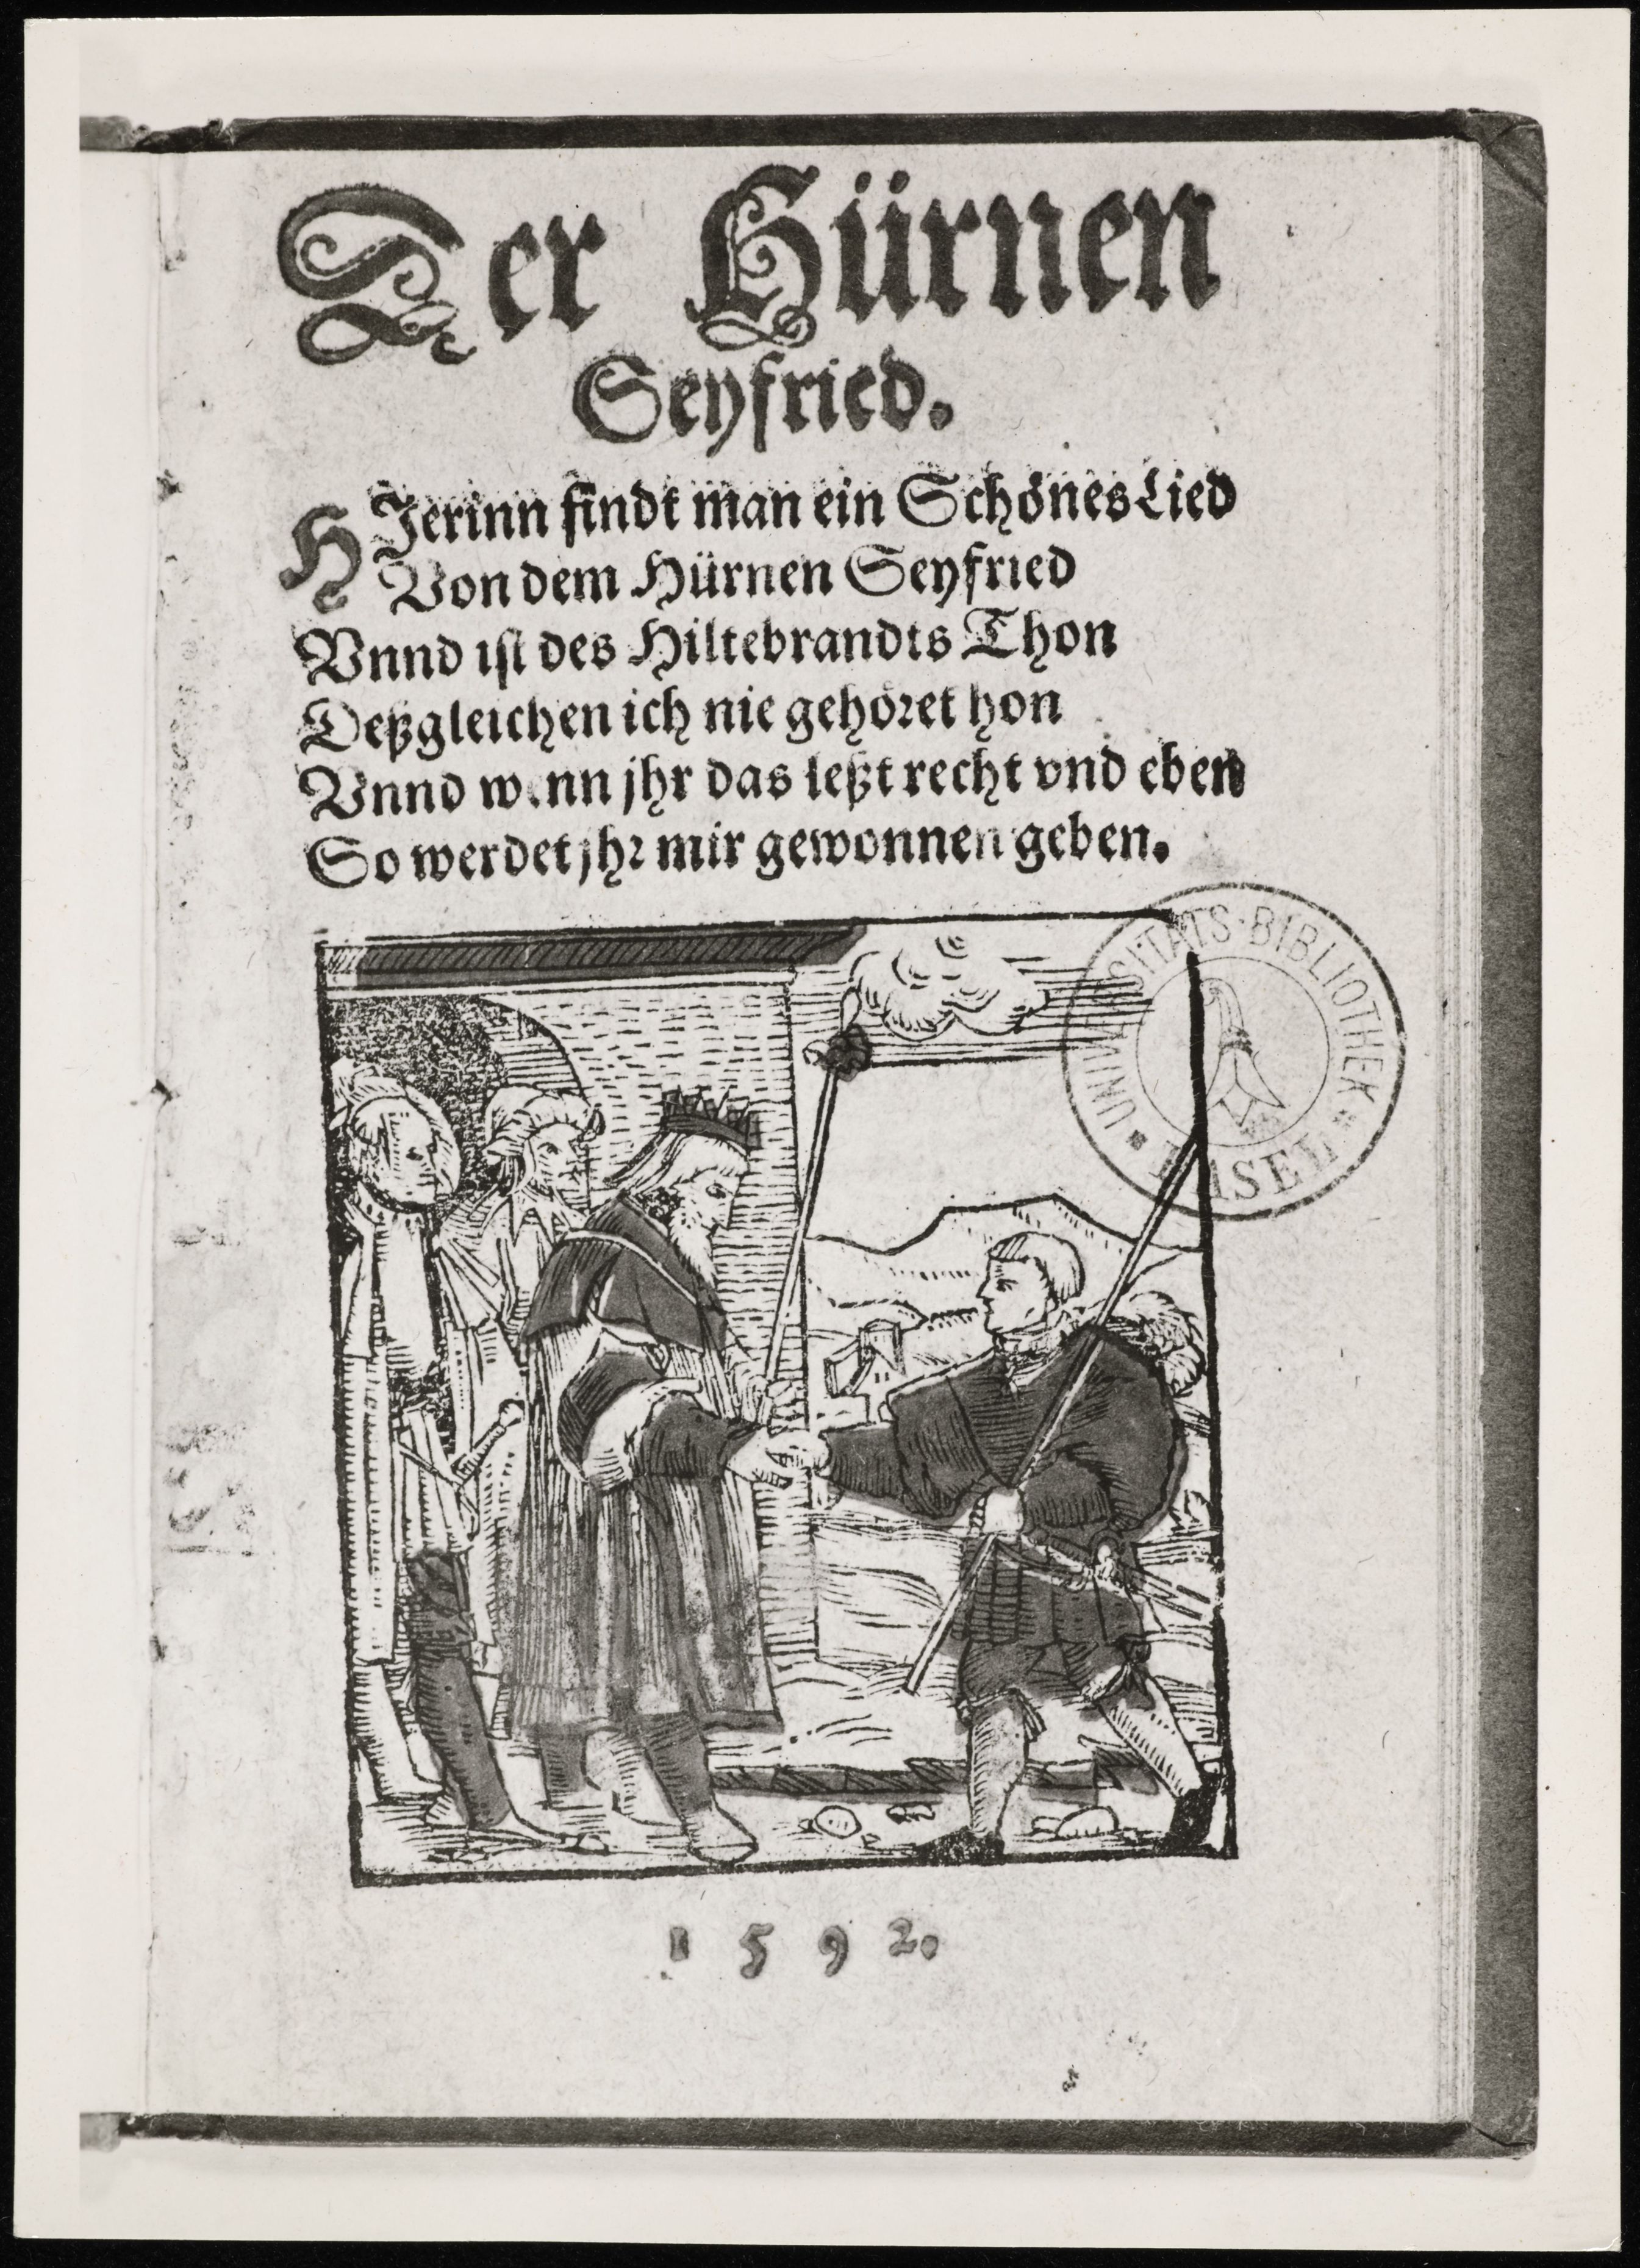 Der Hürnen
Seyfried.
HJerinn findt man ein Schönes Lied
Von dem Hürnen Seyfried
Vnnd ist des Hiltebrandts Thon
Deßgleichen ich nie gehöret hon
Vnnd w.nn jhr das leßt recht vnd eben
So werdet jhr mir gewonnen geben.
UNIVERSITÄTS-BIBLIOTHEK
BASEL
1592.